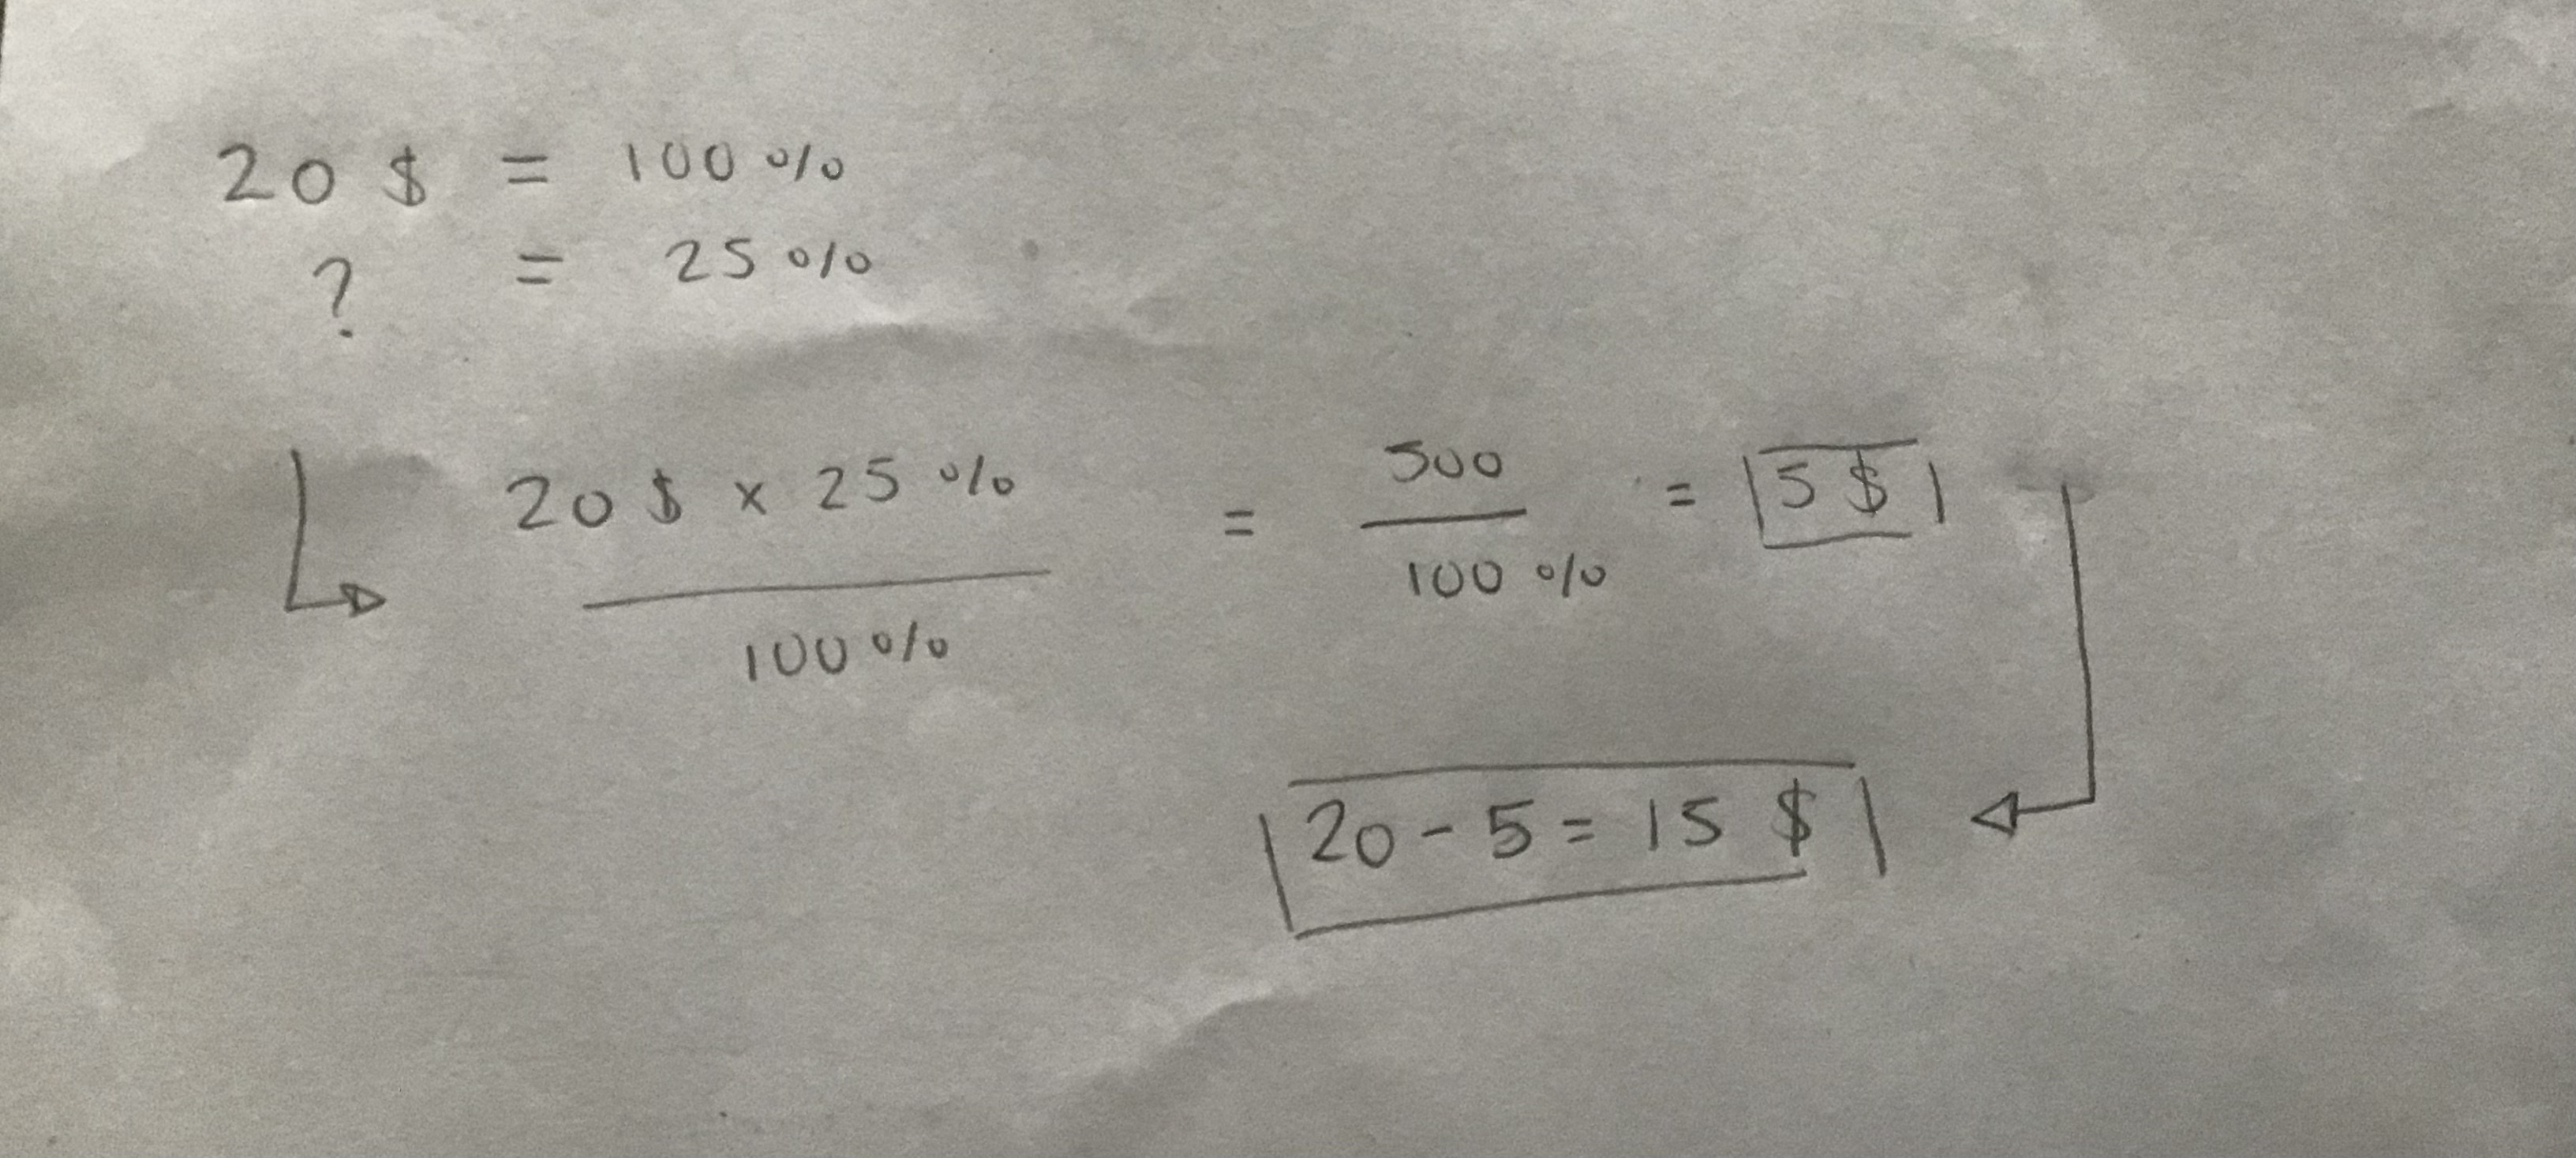 20 $ = 100 %
? = 25 %
20 $ x 25 %
100 %
= 500
100 %
= 5 $
20 - 5 = 15 $